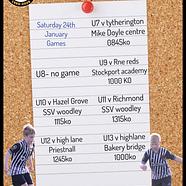 Saturday 24th
January
Games
U7 v tytherington
Mike Doyle centre
0845ko
U8- no game
U9 v Rne reds
Stockport academy
1000 KO
U10 v Hazel Grove
SSV woodley
1115ko
U11 v Richmond
SSV woodley
1315ko
U12 v high lane
Priestnall
1245ko
U13 v highlane
Bakery bridge
1000ko